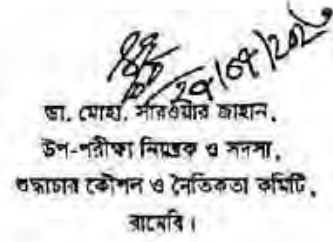 ২৭/০৭/২০২
ডা. মোহা. সারওয়ার জাহান,
উপ-পরীক্ষা নিয়ন্ত্রক ও সদস্য,
শুদ্ধাচার কৌশল ও নৈতিকতা কমিটি,
রামেবি।